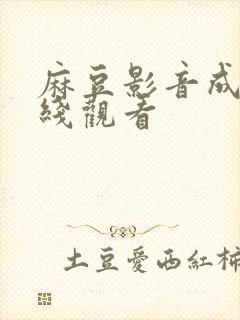 麻豆影音成
綫觀看
土豆愛西紅柿